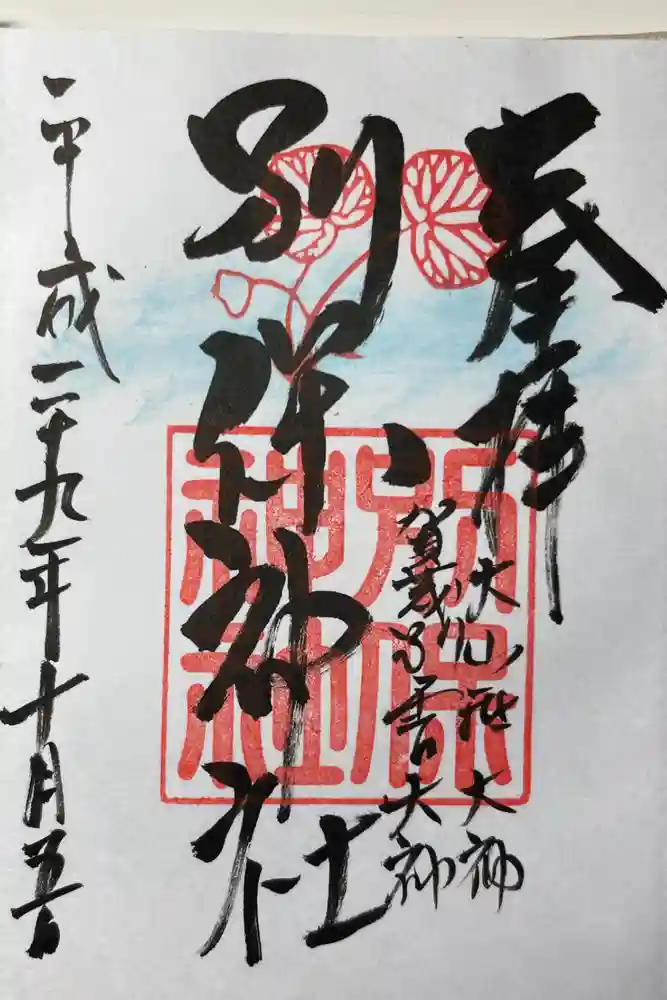 奉拝
大山祇大神
賀茂別雷大神
別保神社
別保
神社
平成二十九年十月五日